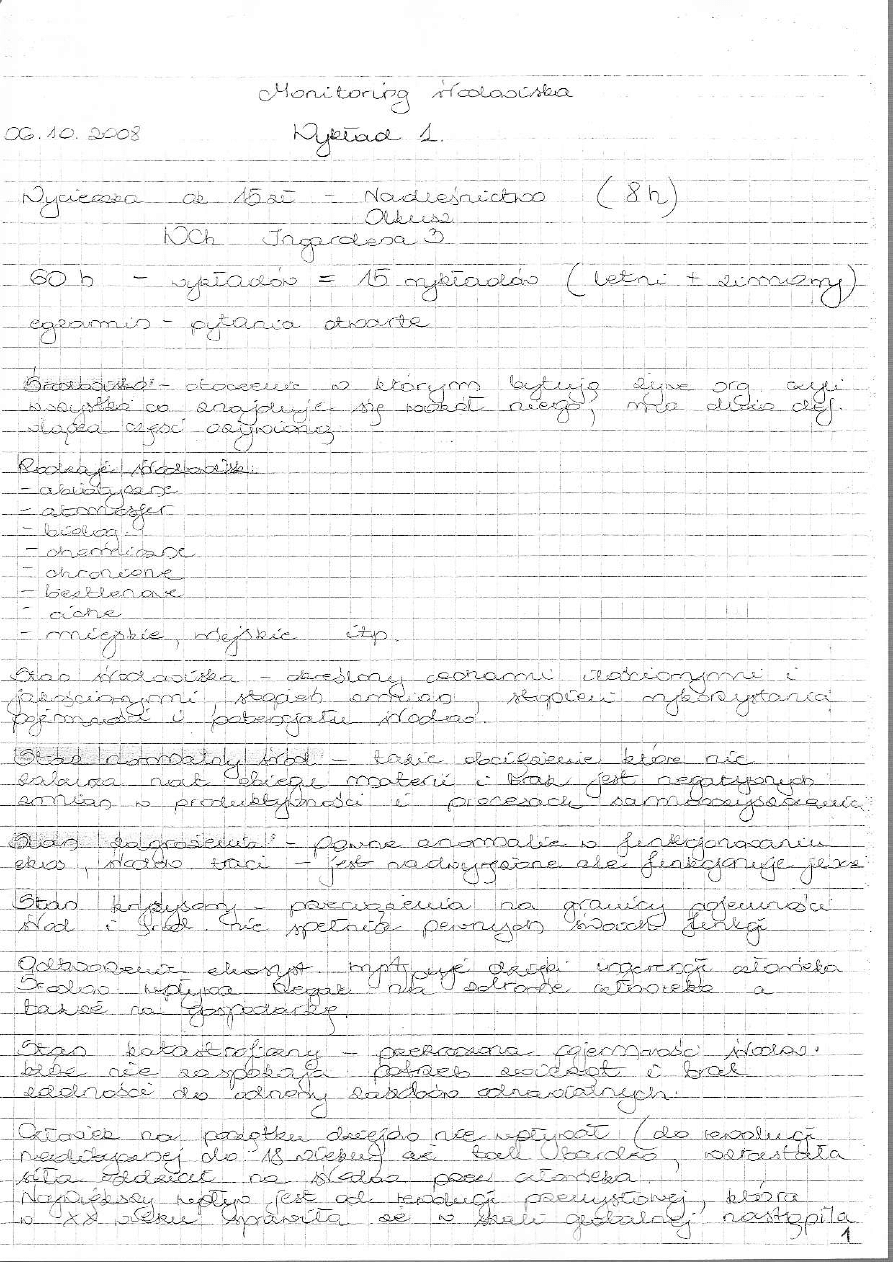 Monitoring środowiska
06.10.2008 Wykład 1.
Wycieczka ok 15 zł - Nadleśnictwo (8h)
Olkusz
WCh Ingardena 3
60 h - wykładów = 15 wykładów (letni + zimowy)
egzamin - pytania otwarte
Środowisko - otoczenie w którym bytują żywe org czyli
wszystko co znajduje się wokół niego, ma dużo def.
część ożywioną
Rodzaje środowisk:
- abiotyczne
- atmosfer
- biolog.
- chemiczne
- chronione
- beztlenowe
- ciche
- miejskie, wiejskie itp.
Stan środowiska - określony cechami ilościowymi i
jakościowymi stopień zmian, stopień wykorzystania
pojemności i potencjału środow.
Stan normalny środ - takie obciążenie które nie
zakłóca nat obiegu materii i brak jest negatywnych
zmian w produktywności i procesach samooczyszczania
Stan zagrożenia - pewne anomalie w funkcjonowaniu
ekos, środow traci - jest nadwyrężone ale funkcjonuje jeszcze
Stan kryzysowy - przeciążenia na granicy pojemności
środ i środ. nie spełnia pewnych swoich funkcji
Odtworzenie ekosyst. dzięki ingerencji człowieka
Środow wpływa negat na zdrowie człowieka a
także na gospodarkę.
Stan katastrofalny - przekroczona pojemność środow.
nie zaspokaja potrzeb zwierząt i brak
zdolności do odnowy zasobów odnawialnych.
Człowiek na początku dziejów nie wpływał (do rewolucji
do 18 wieku) aż tak bardzo, wzrastała
siła oddział na środow przez człowieka.
Największy wpływ jest od rewolucji przemysłowej, która
w XX wieku sprawiła że w skali globalnej nastąpiła
1